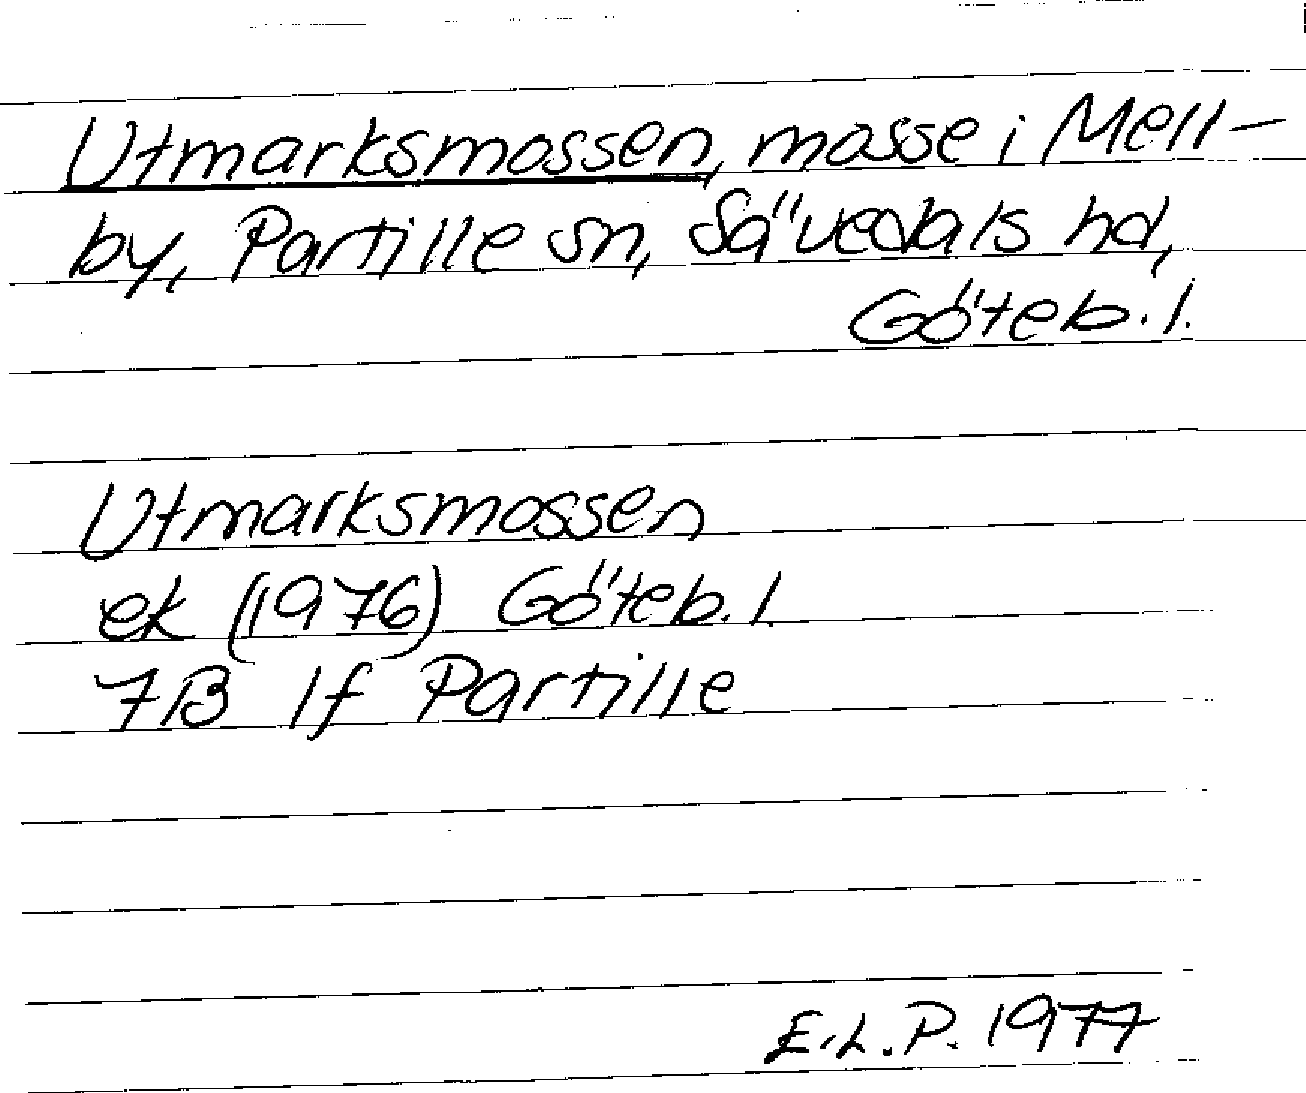 Utmarksmossen, mosse i Mell-
by, Partille sn, Sävedals hd,
Göteb. l.
Utmarksmossen
ek (1976) Göteb. l.
7B 1f Partille
E.L.P. 1977